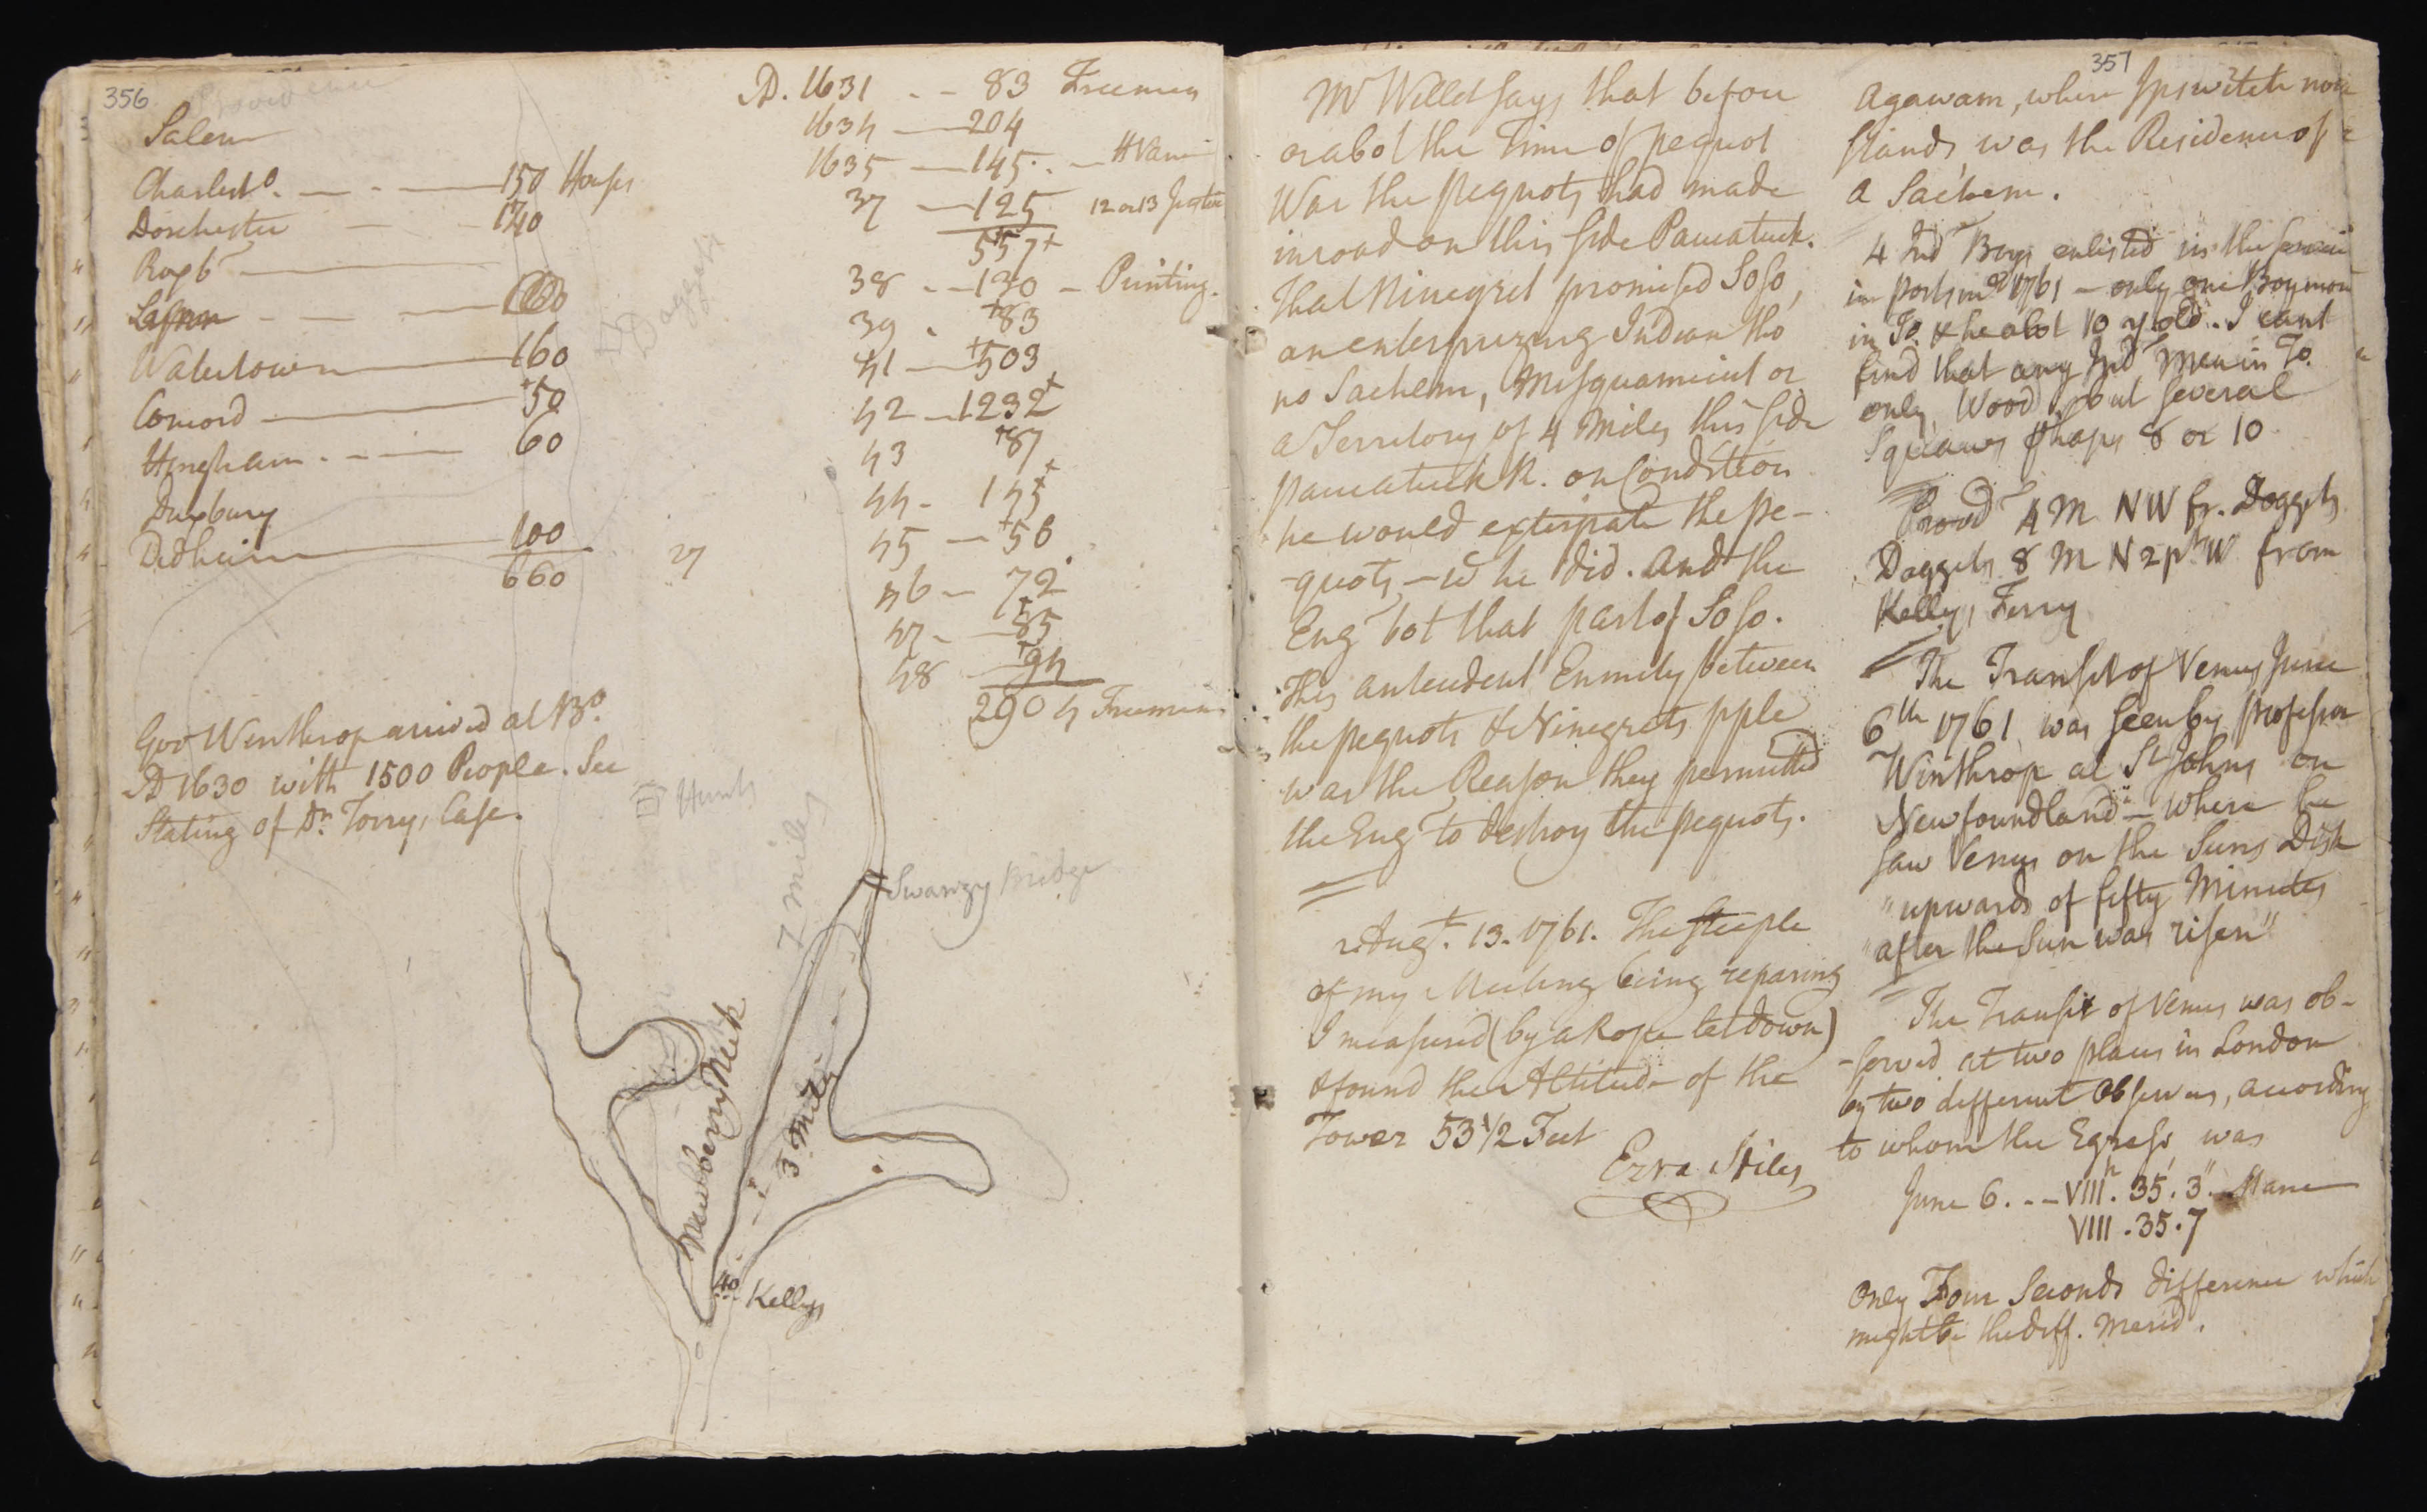 356
Providence
Salem
Charlesto. — - — 150 Houses
Dorchester — - 140
Roxb
— - — 
Watertown — 160
Concord — 50
Hingham . - — 60
Duxbury
Dedham — 100
660
27
Govr Winthrop arrived at Bo.
AD 1630 with 1500 People. See
Stating of Dr. Torrey's Case.
AD. 1631 - - 83 Freemen
1634 — 204
1635 — 145 . — H Vane
37 — 125 12 or 13
557+
38 - - 130 — Printing.
39 . +83
41 — +503
42 — 1232+
43 +87
44 - 145+
45 — +56
46 — 72
47 - — +85
48 +94
2904 Freemen
Daggets
Hunts
7 miles
Swanzy Bridge
Newberry Neck
3 Miles
Kellys
357
Mr Willet says that before
or abot the Time of pequot
War the pequots had made
inroad on this side Paucatuck.
That Ninegret promised Soso,
an enterprizing Indian tho
no Sachem, Misquamicut or
a Territory of 4 Miles this side
paucatuck R. on Condition
he would extirpate the pe-
-quots — wc he did. And the
Eng bot that part of Soso.
This antecedent Enmity between
the pequots & Ninegrets pple
was the Reason they permitted
the Eng to destroy the pequots.
Augt. 13. 1761. The Steeple
of my Meeting being repairing
I measured (by a Rope let down)
& found the Altitude of the
Tower 53 1/2 Feet
Ezra Stiles
Agawam, where Ipswitch now
stands, was the Residence of
a Sachem.
4 Ind Boys enlisted in the service
in portsmo 1761 — only one Boy more
in To. & he abot 10 y old. I cant
find that any Ind Men in To.
only Wood, but several
Squaws phaps 8 or 10
Provd 4 M NW fr. Doggets
Doggets 8 M N 2 pts W from
Kellys Ferry
The Transit of Venus June
6th 1761 was seen by professor
Winthrop at St Johns on
Newfoundland — "where he
saw Venus on the Suns Disk
"upwards of fifty Minutes
"after the Sun was risen"
The Transit of Venus was ob-
-served at two places in London
by two different Observers, according
to whom the Egress was
June 6. - - VIIIh. 35'. 3". Mane
VIII . 35 . 7
Only Four Seconds difference which
might be the diff. Merid.